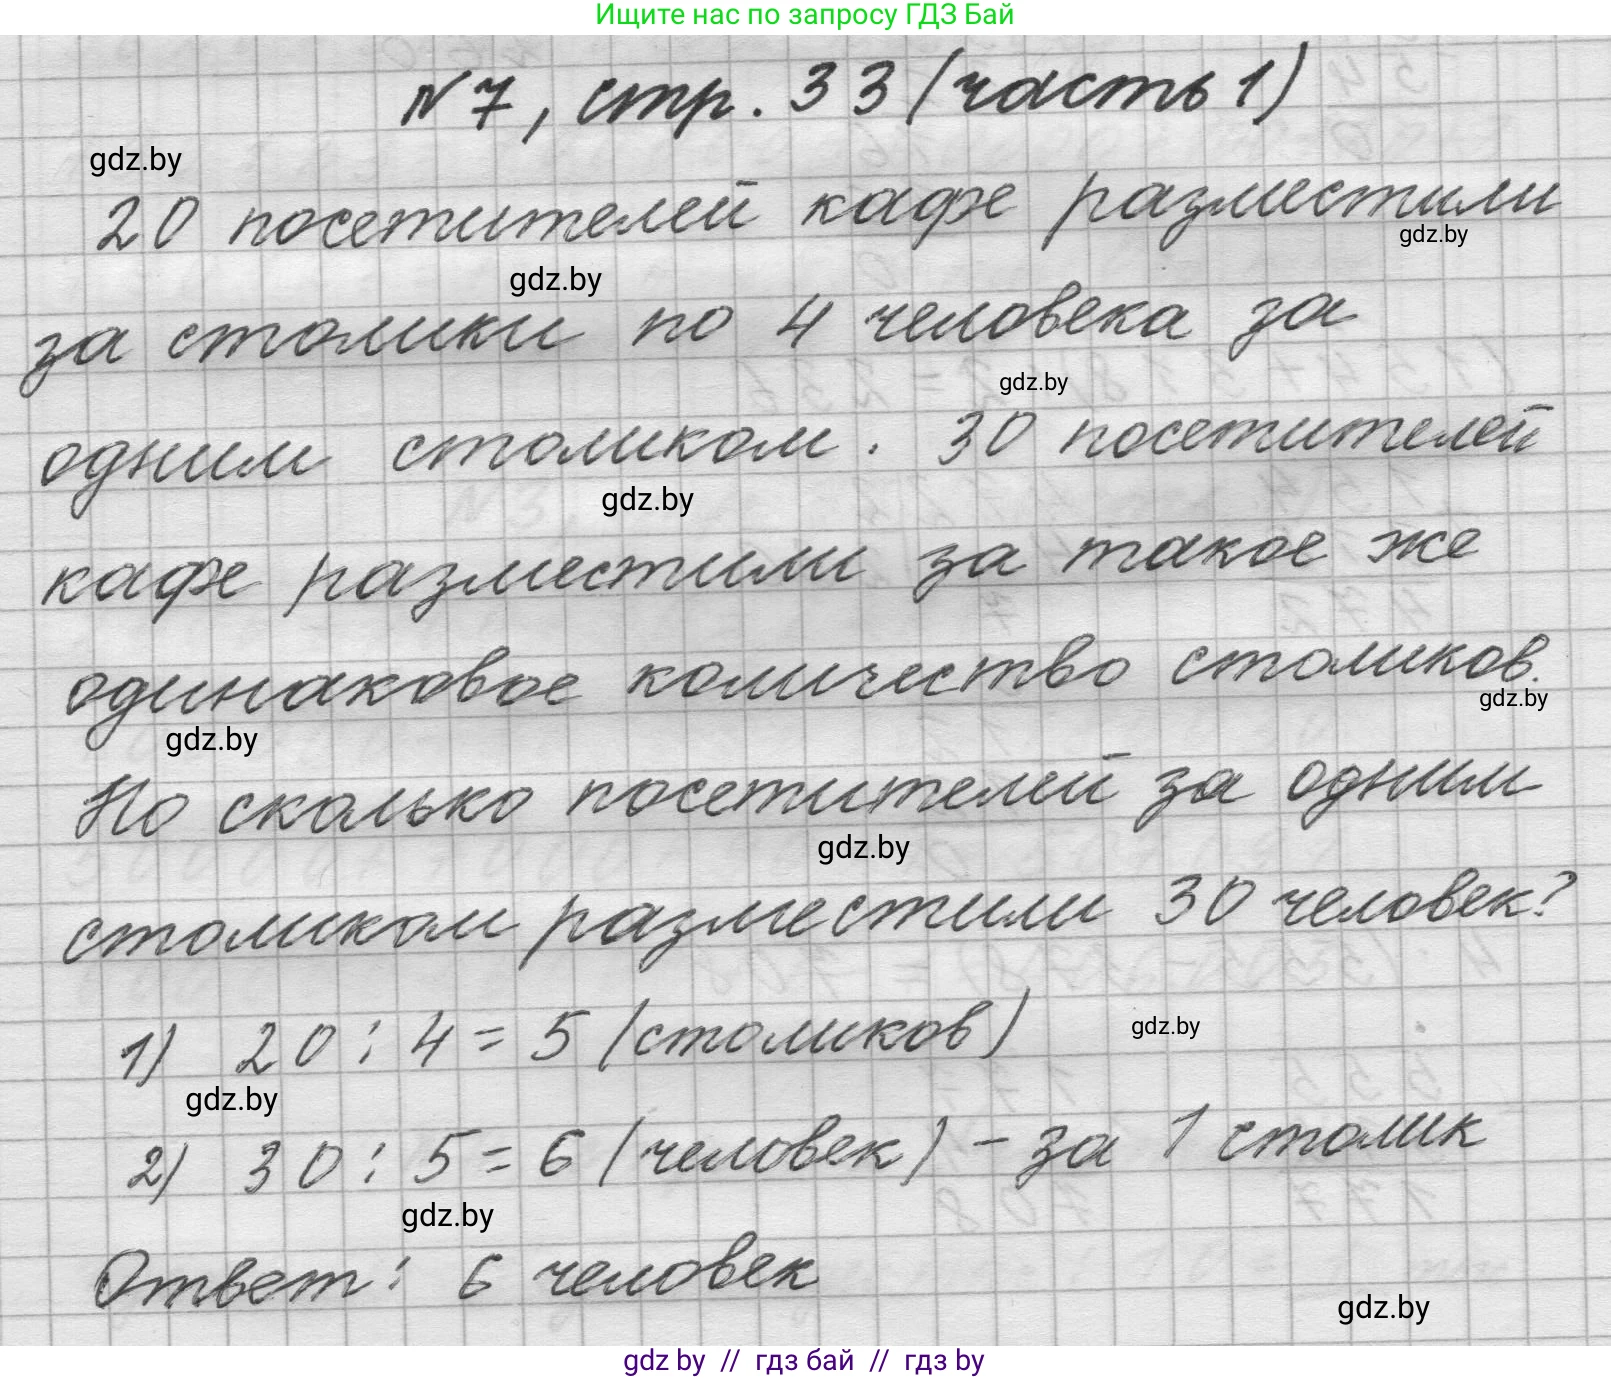 Ищите нас по запросу ГДЗ Бай
№7, стр. 33 (часть 1)
gdz.by
20 посетителей кафе разместили
gdz.by
gdz.by
за столики по 4 человека за
gdz.by
одним столиком. 30 посетителей
gdz.by
кафе разместили за такое же
одинаковое количество столиков.
gdz.by
gdz.by
По сколько посетителей за одним
gdz.by
столиком разместили 30 человек?
1) 20 : 4 = 5 (столиков)
gdz.by
gdz.by
2) 30 : 5 = 6 (человек) - за 1 столик
gdz.by
Ответ: 6 человек
gdz.by
gdz by // гдз бай // gdz by